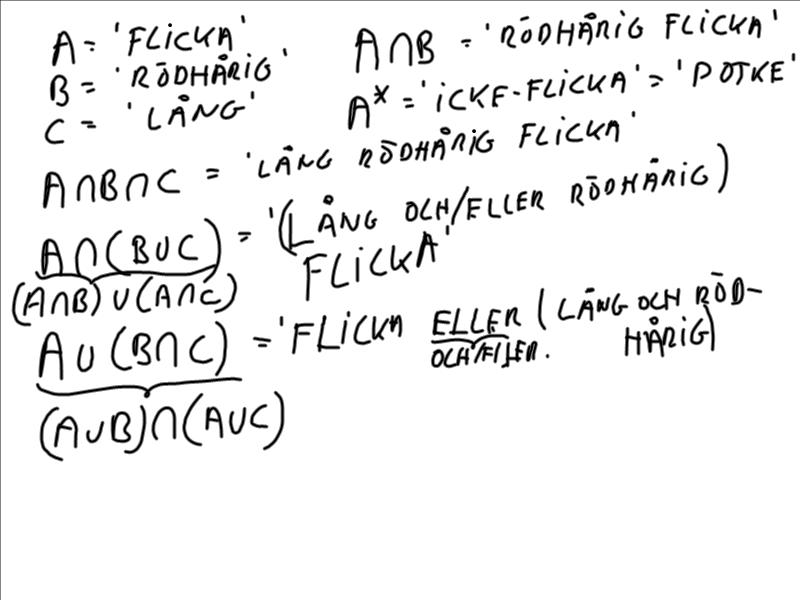 A = 'FLICKA'
B = 'RÖDHÅRIG'
C = 'LÅNG'
A∩B = 'RÖDHÅRIG FLICKA'
A* = 'ICKE-FLICKA' = 'POTKE'
A∩B∩C = 'LÅNG RÖDHÅRIG FLICKA'
A∩(B∪C) = '(LÅNG OCH/ELLER RÖDHÅRIG)
FLICKA'
(A∩B)∪(A∩C)
A∪(B∩C) = 'FLICKA ELLER (LÅNG OCH RÖD-
HÅRIG)
OCH/ELLER.
(A∪B)∩(A∪C)